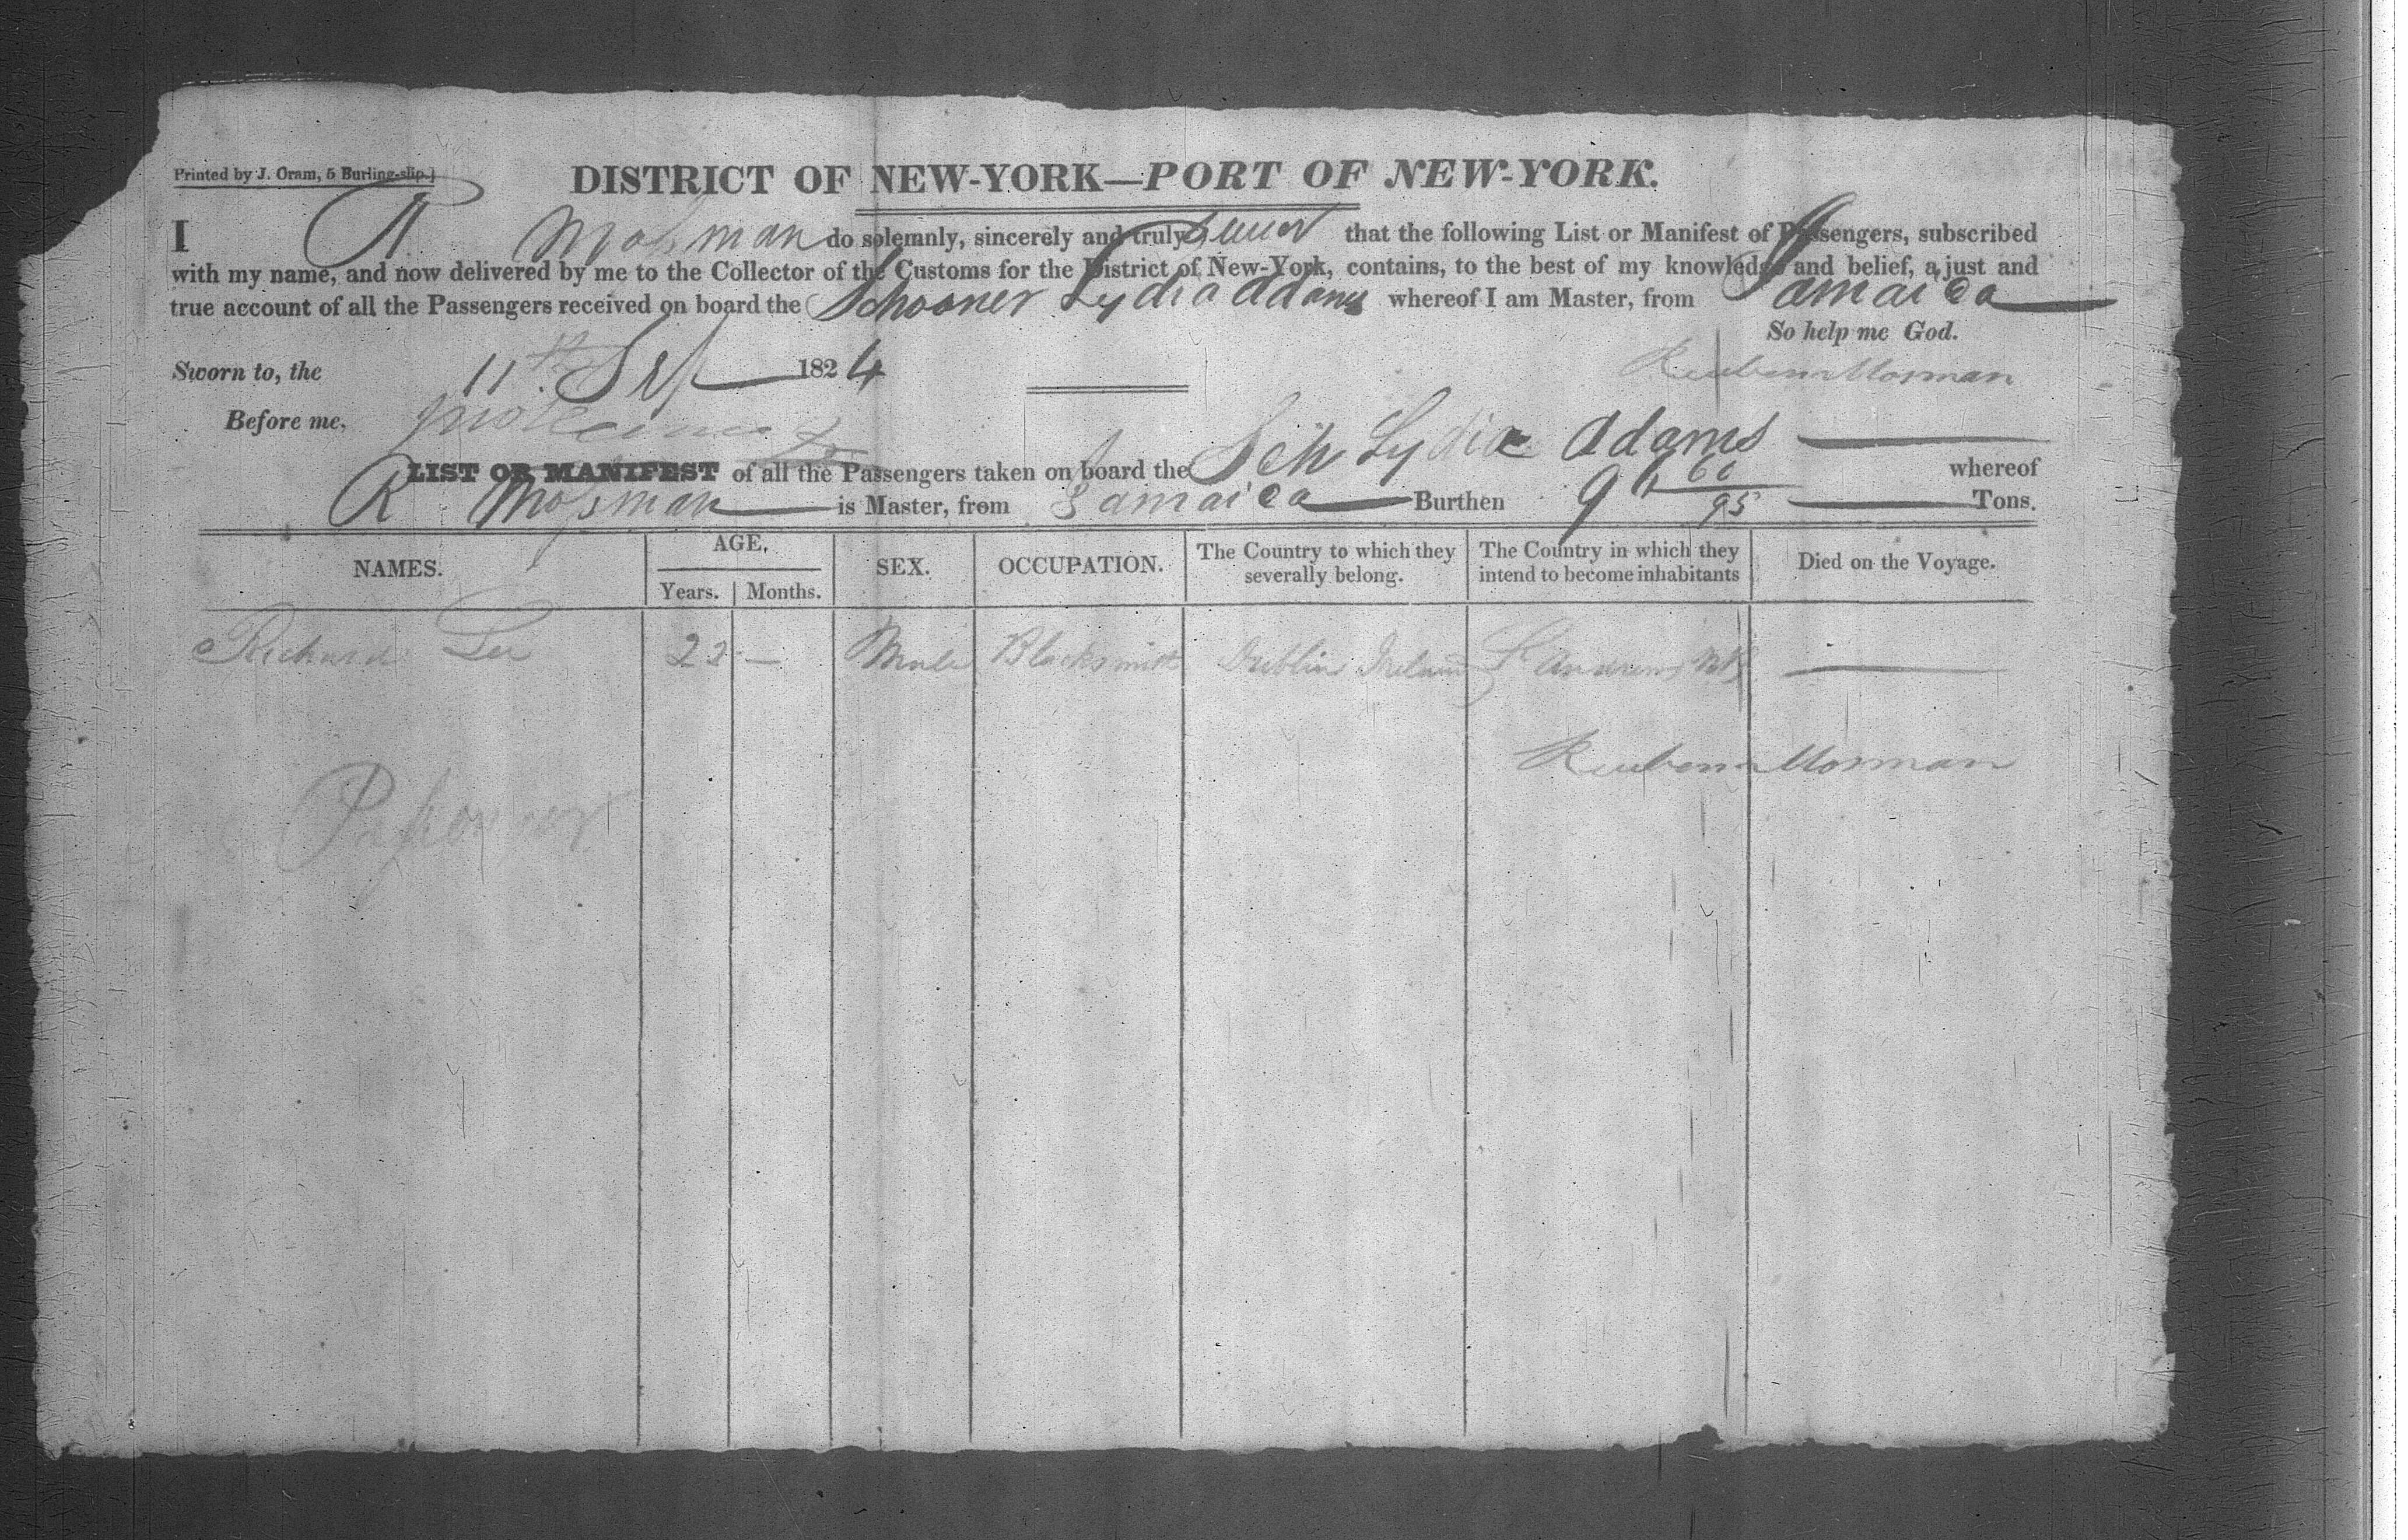 Printed by J. Oram, 5 Burling-slip.]
DISTRICT OF NEW-YORK—PORT OF NEW-YORK.
I R Mosman do solemnly, sincerely and truly swear that the following List or Manifest of Passengers, subscribed
with my name, and now delivered by me to the Collector of the Customs for the District of New-York, contains, to the best of my knowledge and belief, a just and
true account of all the Passengers received on board the Schooner Lydia Adams whereof I am Master, from Jamaica
So help me God.
Sworn to, the 11th. Sep 1824
Reuben Mosman
Before me,
LIST OR MANIFEST of all the Passengers taken on board the Sch Lydia Adams whereof
R Mosman is Master, from Jamaica Burthen 60/95 Tons.
NAMES. AGE, Years. Months. SEX. OCCUPATION. The Country to which they severally belong. The Country in which they intend to become inhabitants Died on the Voyage.
Richard Lee 22 — Male Blacksmith Dublin Ireland St Andrews NB —
Reuben Mosman